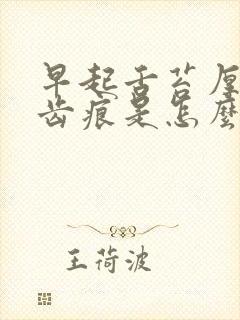 早起舌苔厚
齿痕是怎麼
王荷波